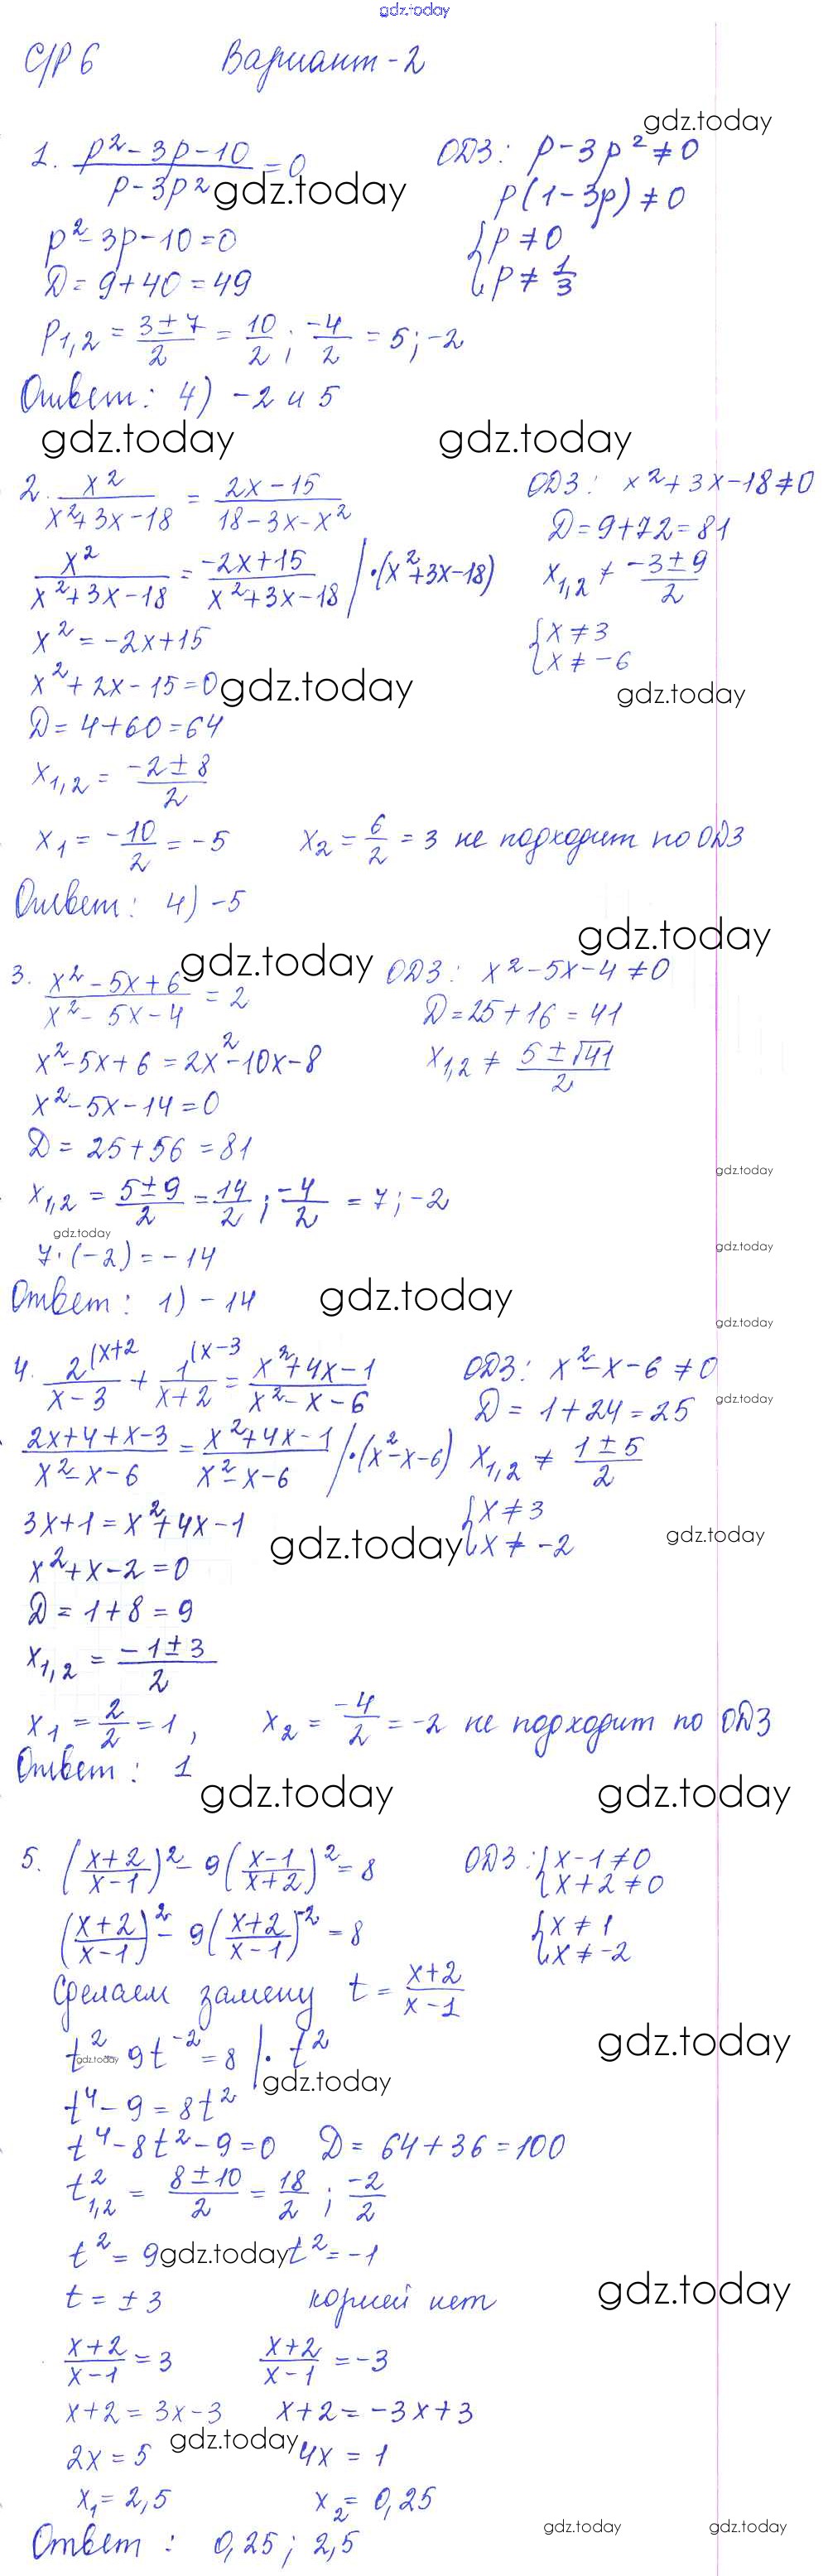 gdz.today
С/Р 6 Вариант-2
gdz.today
1. (p² - 3p - 10)/(p - 3p²) = 0 ОДЗ: p - 3p² ≠ 0
gdz.today
p(1 - 3p) ≠ 0
p² - 3p - 10 = 0 { p ≠ 0
D = 9 + 40 = 49 { p ≠ 1/3
p₁,₂ = (3 ± 7)/2 = 10/2 ; -4/2 = 5; -2
Ответ: 4) -2 и 5
gdz.today gdz.today
2. x²/(x² + 3x - 18) = (2x - 15)/(18 - 3x - x²) ОДЗ: x² + 3x - 18 ≠ 0
D = 9 + 72 = 81
x²/(x² + 3x - 18) = (-2x + 15)/(x² + 3x - 18) | · (x² + 3x - 18) x₁,₂ ≠ (-3 ± 9)/2
x² = -2x + 15 { x ≠ 3
{ x ≠ -6
x² + 2x - 15 = 0 gdz.today gdz.today
D = 4 + 60 = 64
x₁,₂ = (-2 ± 8)/2
x₁ = -10/2 = -5 x₂ = 6/2 = 3 не подходит по ОДЗ
Ответ: 4) -5
gdz.today
gdz.today
3. (x² - 5x + 6)/(x² - 5x - 4) = 2 ОДЗ: x² - 5x - 4 ≠ 0
D = 25 + 16 = 41
x² - 5x + 6 = 2x² - 10x - 8 x₁,₂ ≠ (5 ± √41)/2
x² - 5x - 14 = 0
D = 25 + 56 = 81
gdz.today
x₁,₂ = (5 ± 9)/2 = 14/2 ; -4/2 = 7; -2
gdz.today gdz.today
7 · (-2) = -14
Ответ: 1) -14 gdz.today
gdz.today
4. 2(x+2/(x - 3) + 1(x-3/(x + 2) = (x² + 4x - 1)/(x² - x - 6) ОДЗ: x² - x - 6 ≠ 0
gdz.today
D = 1 + 24 = 25
(2x + 4 + x - 3)/(x² - x - 6) = (x² + 4x - 1)/(x² - x - 6) | · (x² - x - 6) x₁,₂ ≠ (1 ± 5)/2
3x + 1 = x² + 4x - 1 { x ≠ 3
gdz.today { x ≠ -2 gdz.today
x² + x - 2 = 0
D = 1 + 8 = 9
x₁,₂ = (-1 ± 3)/2
x₁ = 2/2 = 1, x₂ = -4/2 = -2 не подходит по ОДЗ
Ответ: 1
gdz.today gdz.today
5. ((x+2)/(x-1))² - 9((x-1)/(x+2))² = 8 ОДЗ: { x - 1 ≠ 0
{ x + 2 ≠ 0
((x+2)/(x-1))² - 9((x+2)/(x-1))⁻² = 8 { x ≠ 1
{ x ≠ -2
Сделаем замену t = (x+2)/(x-1)
gdz.today
t² - 9t⁻² = 8 | · t²
gdz.today
gdz.today
t⁴ - 9 = 8t²
t⁴ - 8t² - 9 = 0 D = 64 + 36 = 100
t²₁,₂ = (8 ± 10)/2 = 18/2 ; -2/2
t² = 9 gdz.today t² = -1
t = ± 3 корней нет gdz.today
(x+2)/(x-1) = 3 (x+2)/(x-1) = -3
x + 2 = 3x - 3 x + 2 = -3x + 3
gdz.today
2x = 5 4x = 1
x₁ = 2,5 x₂ = 0,25
gdz.today gdz.today
Ответ: 0,25; 2,5